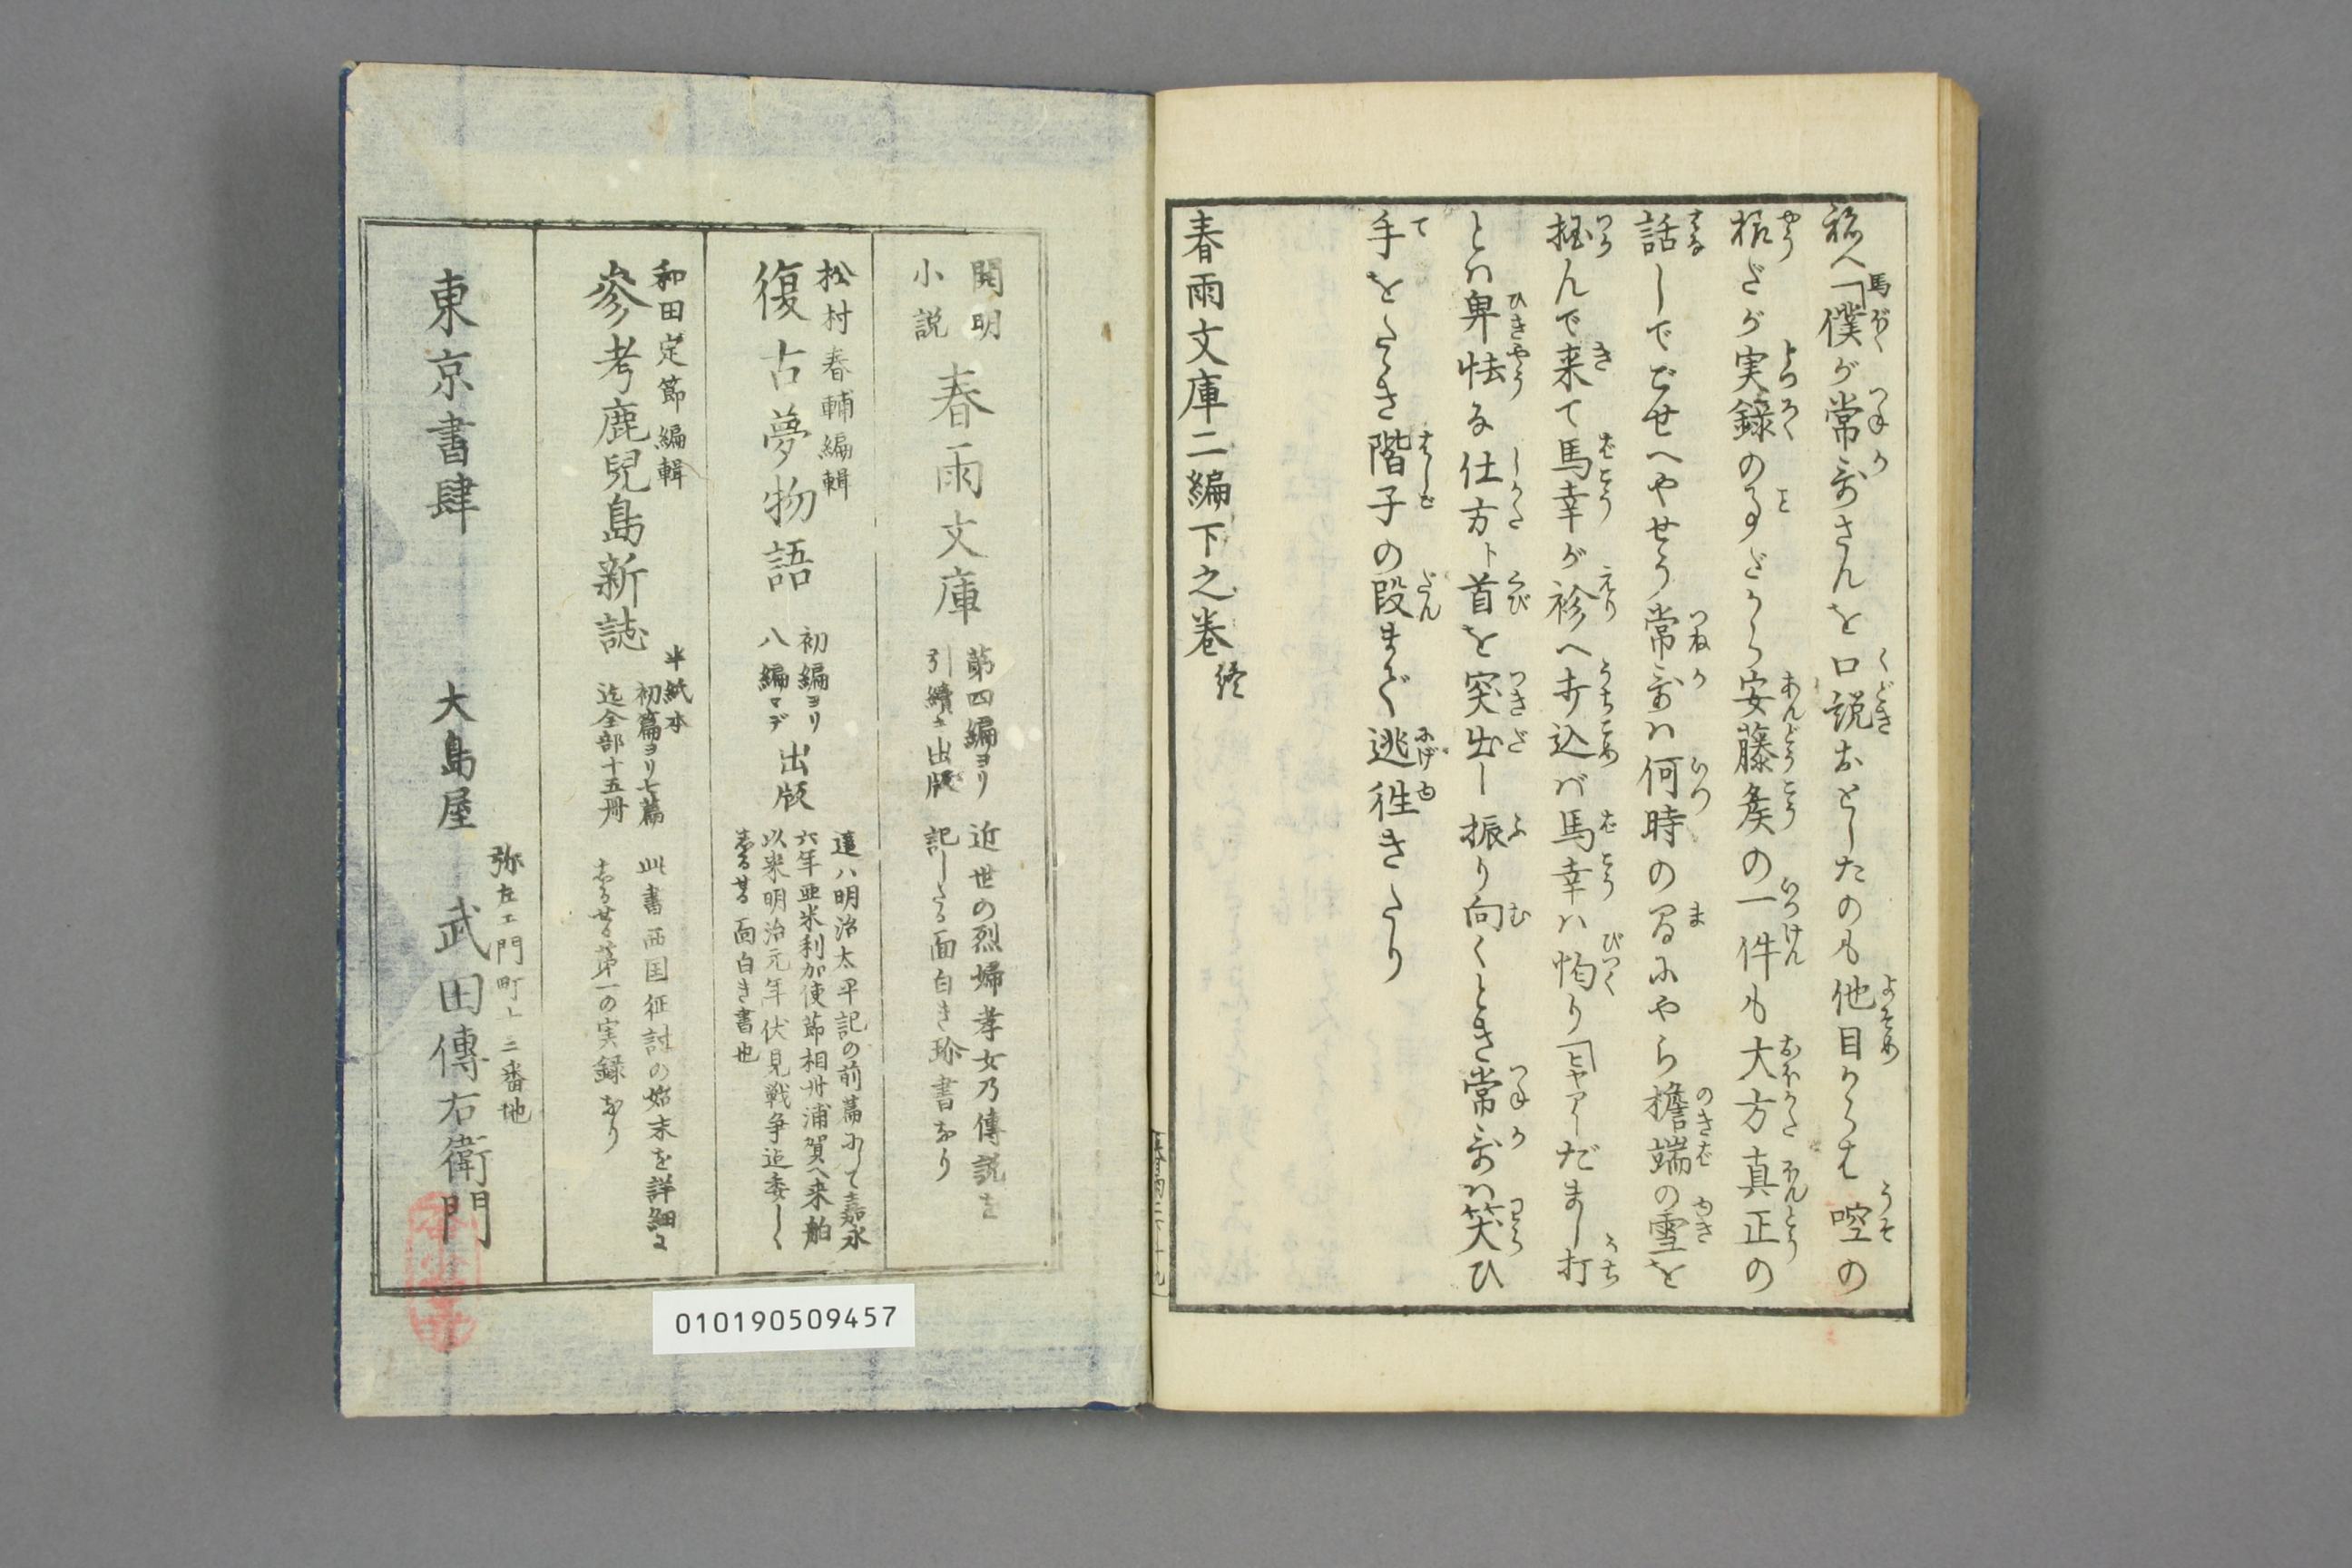 祢へ「僕が常さんを口説おとしたのも他目からは啌の
様だが実録の事だから安藤矦の一件も大方真正の
話しでごせへやせう常吉ハ何時の間にやら檐端の雪を
掴んで来て馬幸が衿へ打込バ馬幸ハ恂り「ヒヤアーだまし打
とハ卑怯な仕方ト首を突出し振り向くとき常吉ハ笑ひ
手をたゝき階子の段まで逃徃きたり
春雨文庫二編下之巻終
開明
小説
春雨文庫
第四編ヨリ
引續キ出版
近世の烈婦孝女乃傳説を
記したる面白き珍書なり
松村春輔編輯
復古夢物語
初編ヨリ
八編マデ
出版
這ハ明治太平記の前篇にして嘉永
六年亜米利加使節相州浦賀へ来舶
以来明治元年伏見戦争迄委しく
志るせる面白き書也
和田定節編輯
參考鹿兒島新誌
半紙本
初篇ヨリ七篇
迄全部十五冊
此書西国征討の始末を詳細に
志るせる第一の実録なり
東京書肆
弥左エ門町十三番地
大島屋 武田傳右衛門
010190509457